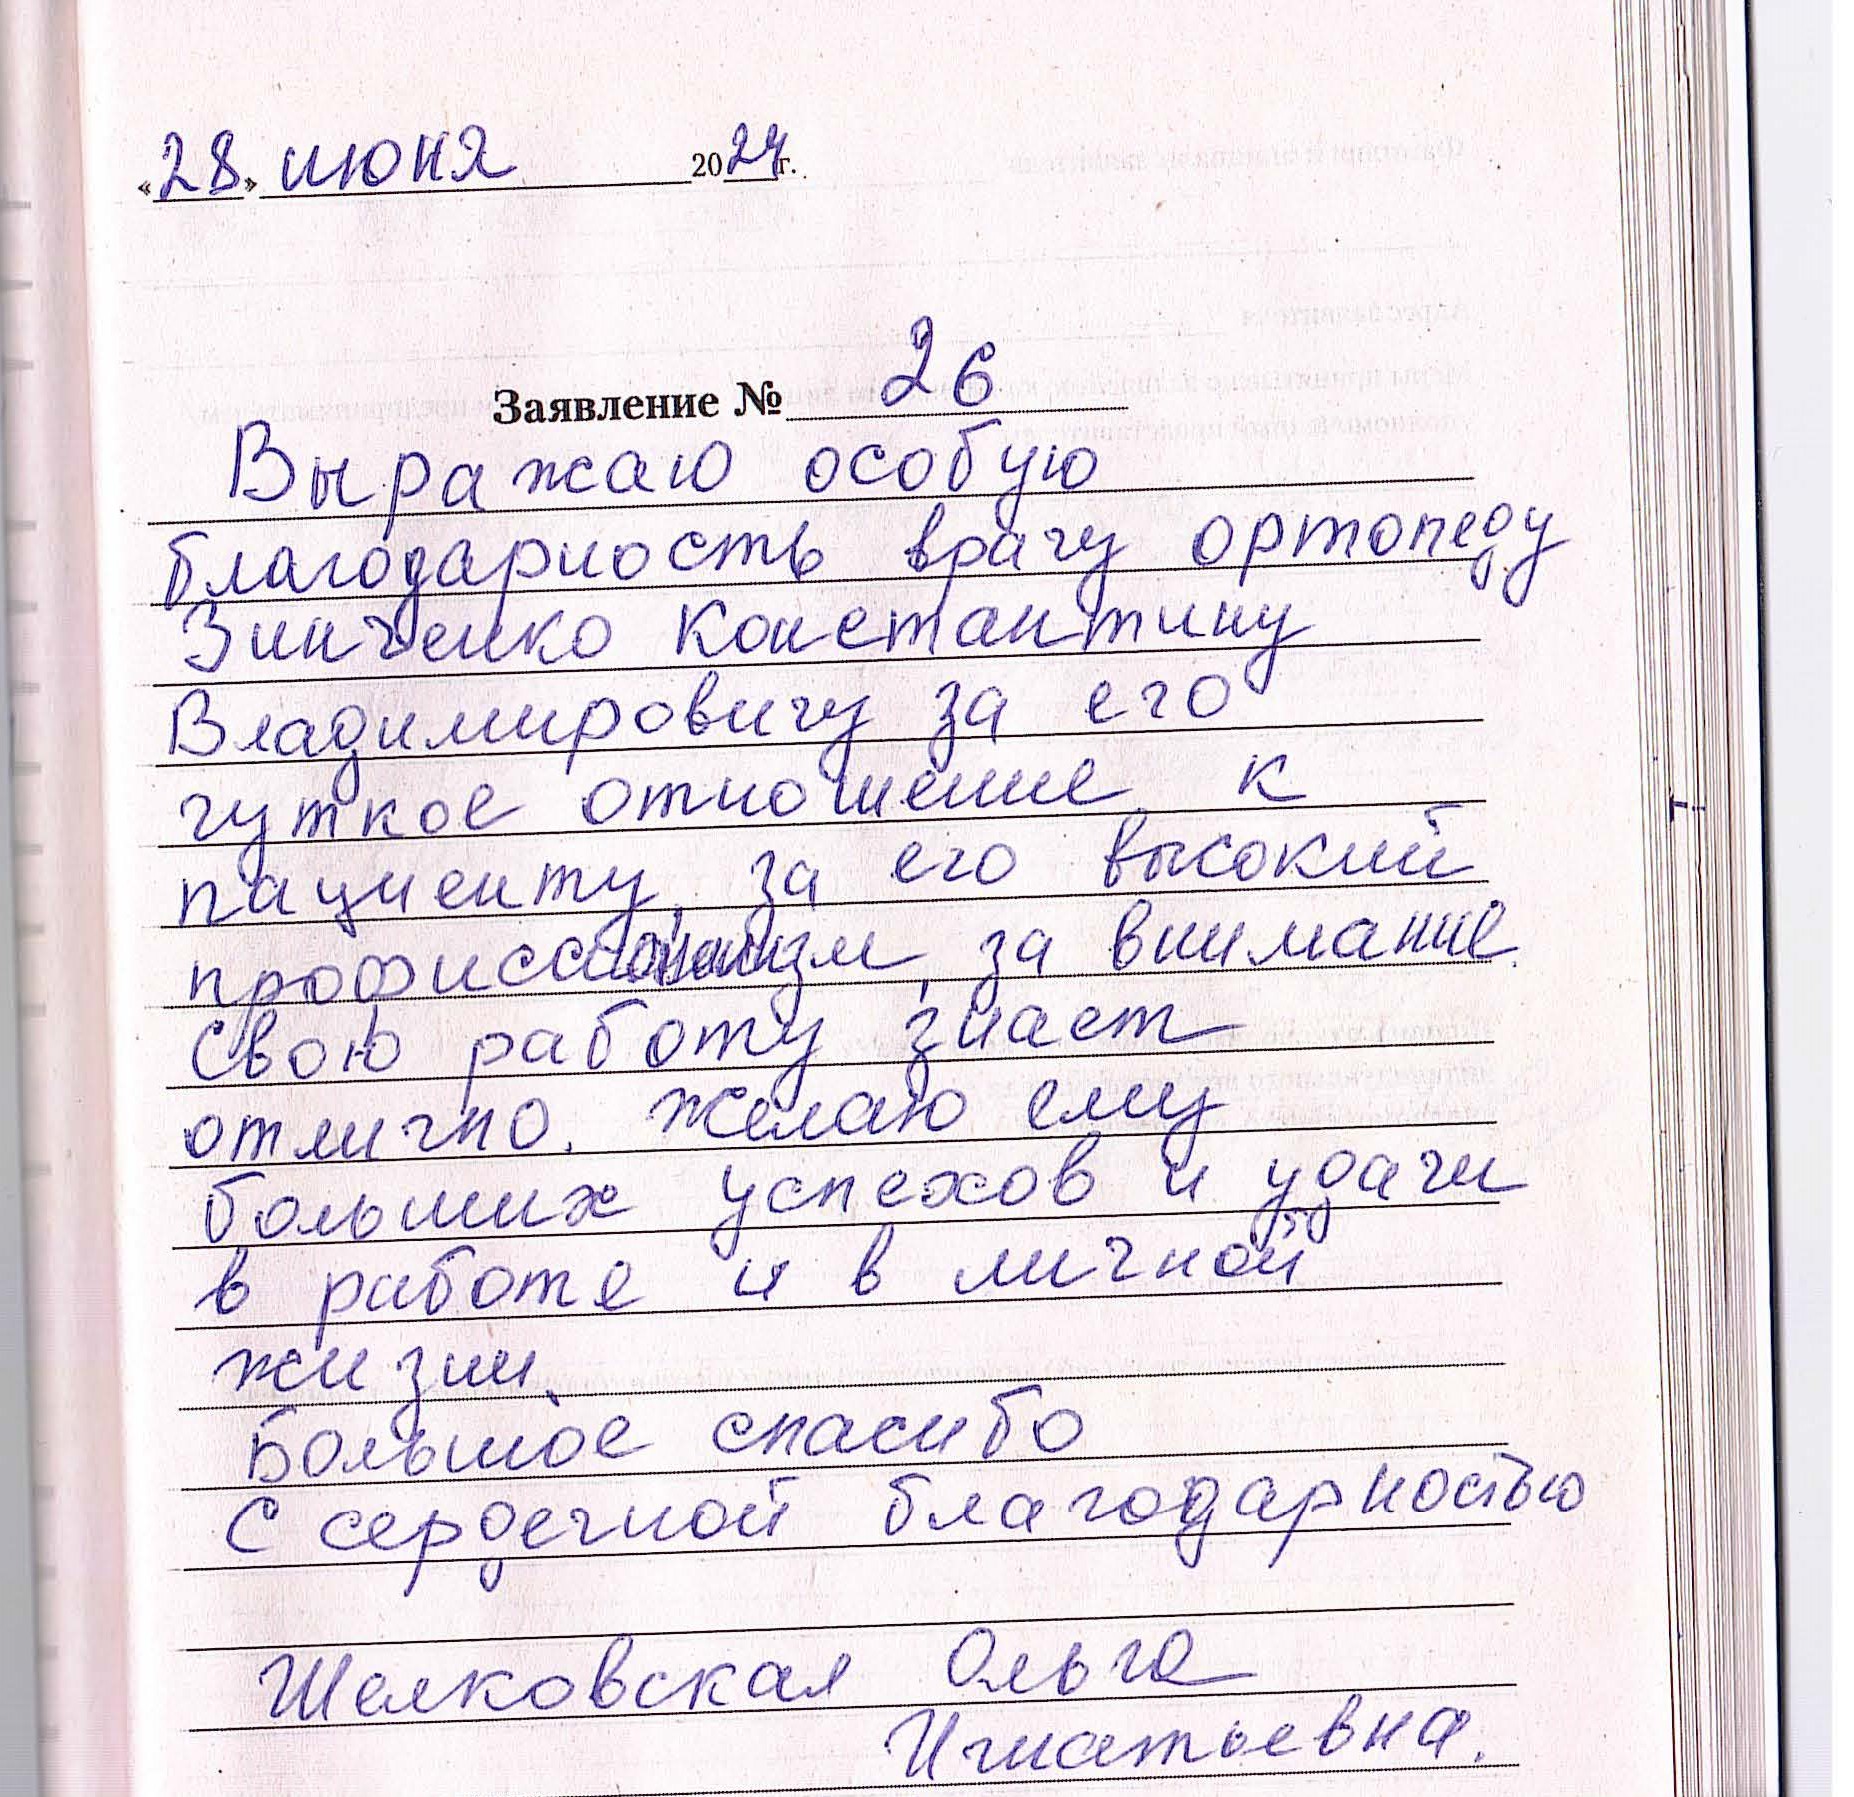 «28» июня 2024г.
Заявление № 26
Выражаю особую
благодарность врачу ортопеду
Зинченко Константину
Владимировичу за его
чуткое отношение к
пациенту, за его высокий
профиссионализм, за внимание.
Свою работу знает
отлично. Желаю ему
больших успехов и удачи
в работе и в личной
жизни.
Большое спасибо
С сердечной благодарностью
Шелковская Ольга
Игнатьевна.